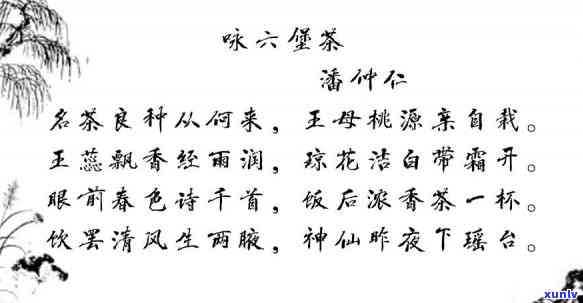 咏六堡茶
潘仲仁
名茶良种从何来，王母桃源亲自栽。
王蕊飘香经雨润，琼花洁白带霜开。
眼前春色诗千首，饭后浓香茶一杯。
饮罢清风生两腋，神仙昨夜下瑶台。
xunlv